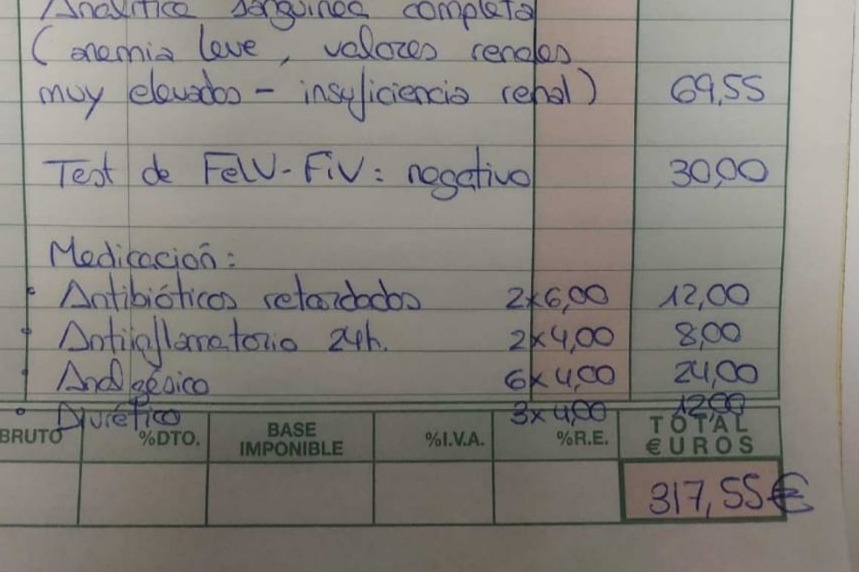 Analítica sanguínea completa
(anemia leve, valores renales
muy elevados - insuficiencia renal) 69,55
Test de FelV-FiV: negativo 30,00
Medicación:
• Antibióticos retardados 2x6,00 12,00
• Antiinflamatorio 24h. 2x4,00 8,00
• Analgésico 6x4,00 24,00
• Diurético 3x4,00 12,00
BRUTO %DTO. BASE IMPONIBLE %I.V.A. %R.E. TOTAL €UROS
317,55€